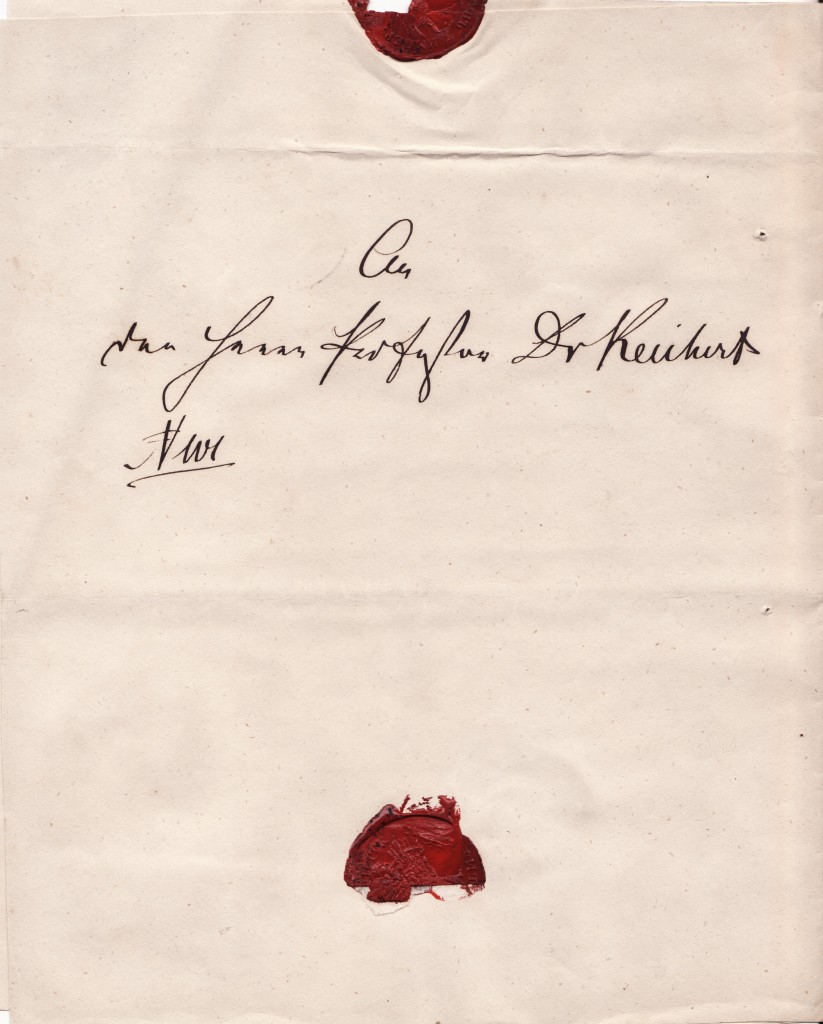 An
den Herrn Professor Dr Reichert